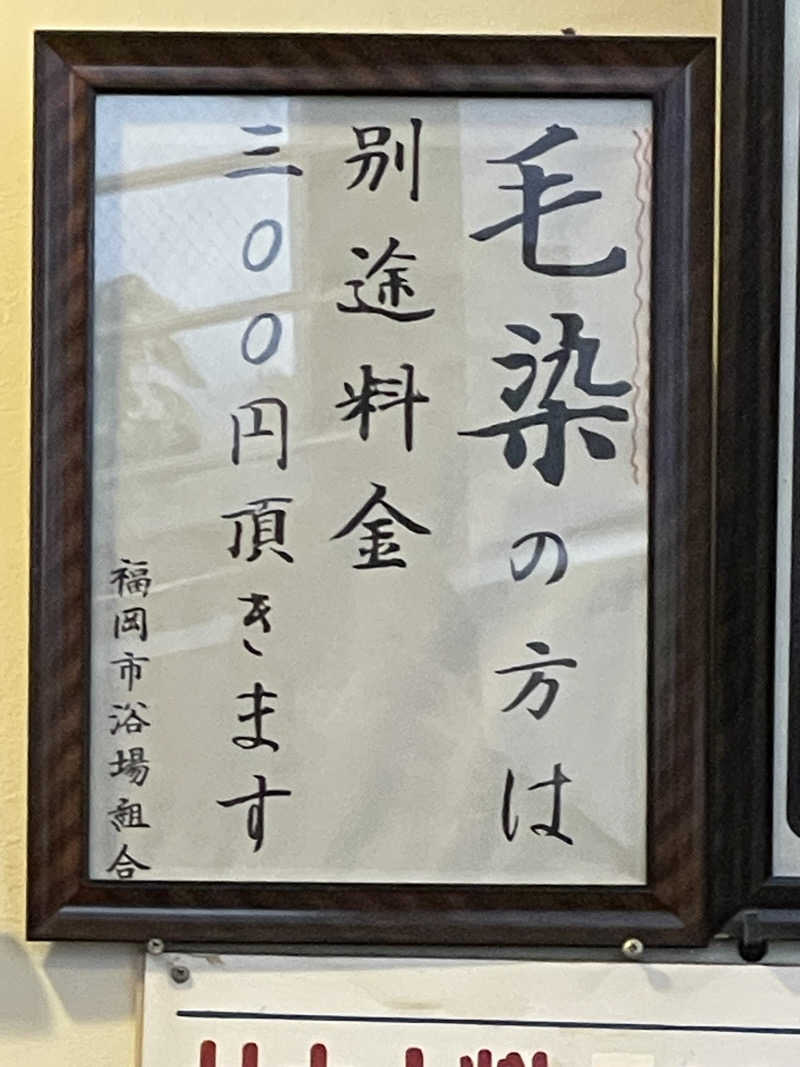 毛染の方は
別途料金
三〇〇円頂きます
福岡市浴場組合